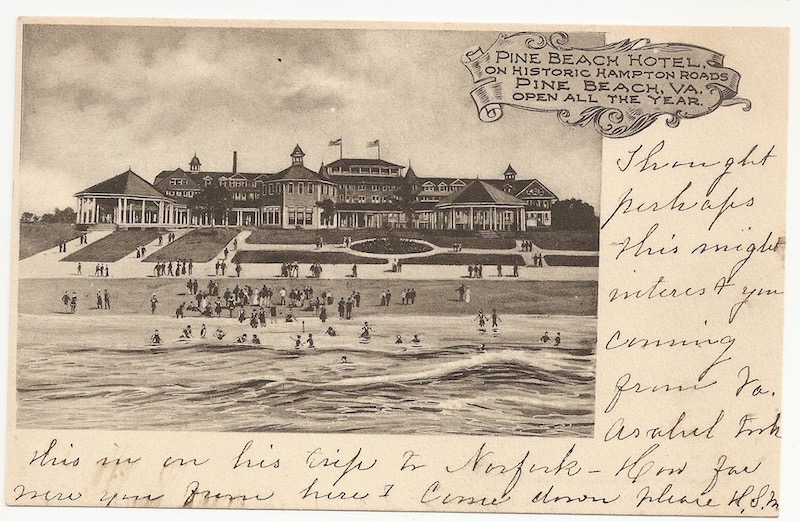 PINE BEACH HOTEL,
ON HISTORIC HAMPTON ROADS
PINE BEACH, VA.
OPEN ALL THE YEAR.
Thought
perhaps
this might
interest you
coming
from Va.
Asahel took
this in on his trip to Norfork – How far
were you from here? Come down please H.S.